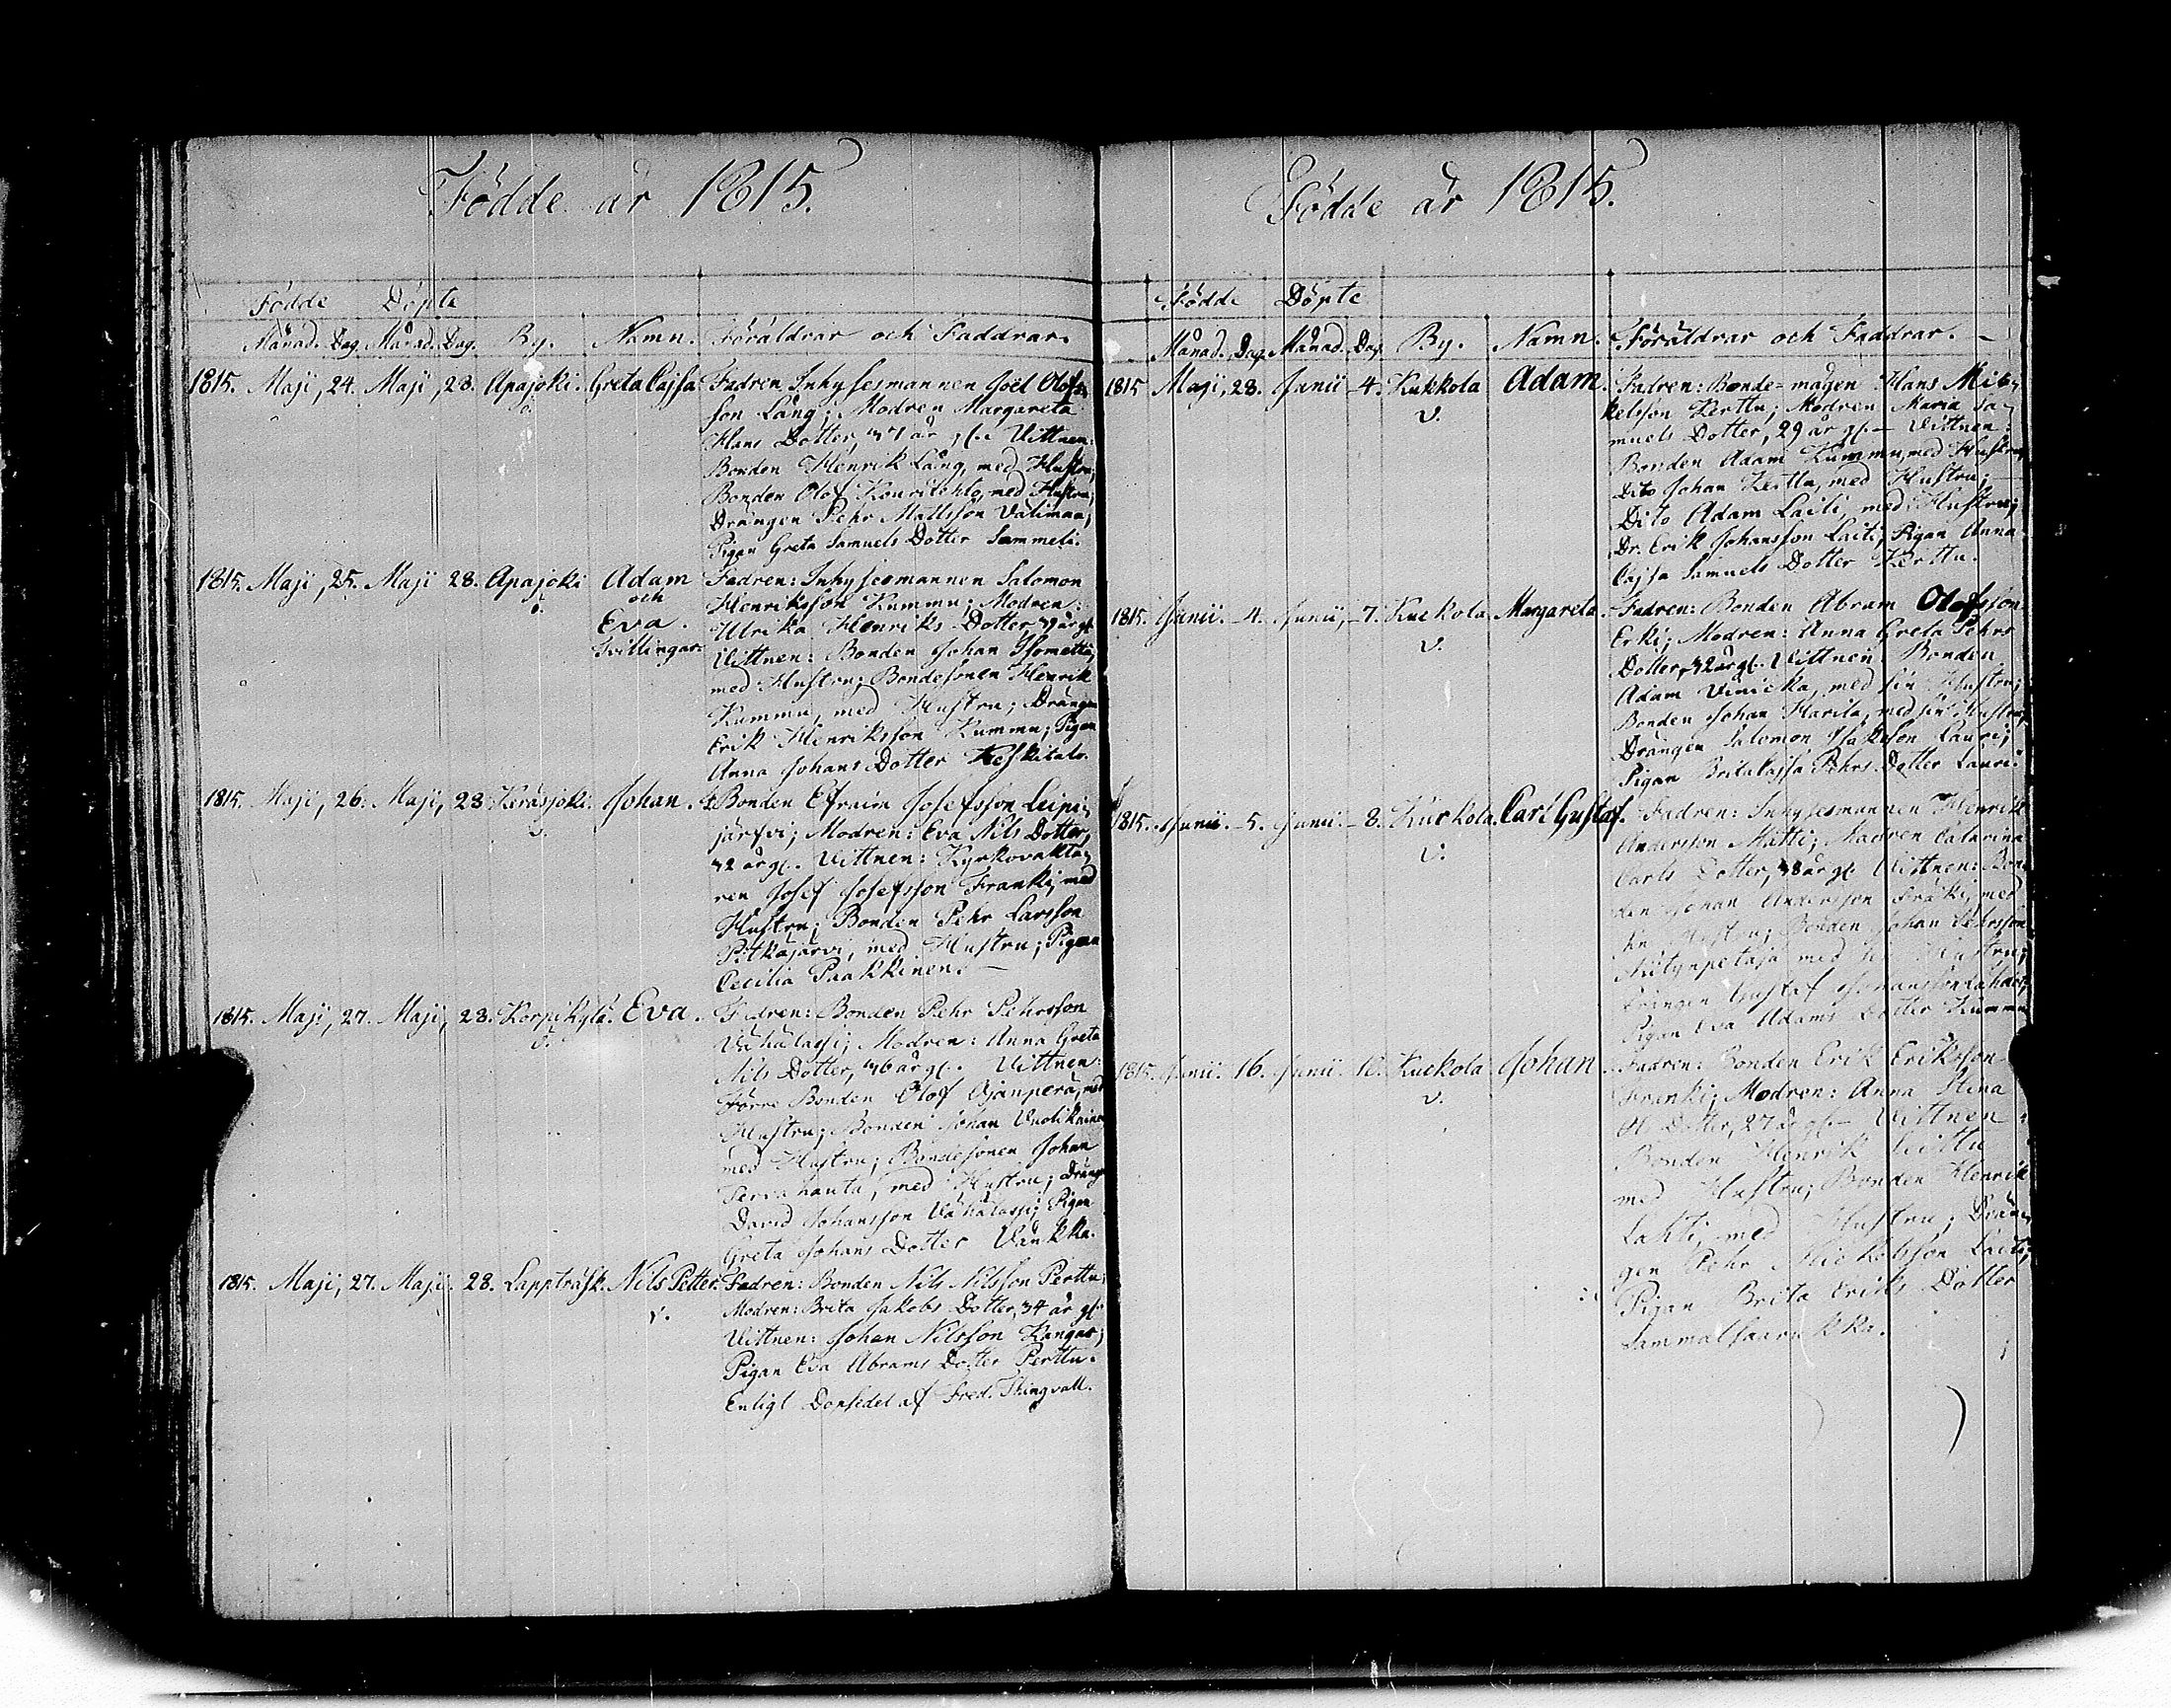 Födde år 1815.
Födde Döpte
Månad. Dag. Månad. Dag. By. Namn. Föräldrar och Faddrar.
1815. Maji, 24. Maji, 28. Apajoki. Greta Cajsa. Fadren Inhysesmannen Joël Olofs-
ö. son Lång; Modren Margareta
Hans Dotter, 37 år gl. Vittnen:
Bonden Henrik Lång, med Hustru;
Bonden Olof Kourilehto, med Hustru;
Drängen Pehr Mattsson Välimaa;
Pigan Greta Samuels Dotter Sammeli.
1815. Maji, 25. Maji 28. Apajoki Adam Fadren: Inhysesmannen Salomon
ö. och Henriksson Kummu; Modren:
Eva. Ulrika Henriks Dotter 39 år gl.
Tvillingar. Vittnen: Bonden Johan Isometsä;
med Hustru; Bondesonen Henrik
Kummu, med Hustru; Drängen
Erik Henriksson Kummu; Pigan
Anna Johans Dotter Keskitalo.
1815. Maji, 26. Maji, 28. Keräsjoki. Johan. Bonden Efraim Josefsson Leipi-
ö. järfvi; Modren: Eva Nils Dotter,
32 år gl. Vittnen: Kyrkovakta-
ren Josef Josefsson Franki, med
Hustru; Bonden Pehr Larsson
Pitkäjärvi, med Hustru; Pigan
Cecilia Paakkinen.
1815. Maji, 27. Maji, 28. Korpikylä. Eva. Fadren: Bonden Pehr Pehrsson
ö. Vähälassi; Modren: Anna Greta
Nils Dotter, 36 år gl. Vittnen:
Förre Bonden Olof Ojanperä, med
Hustru; Bonden Johan Vuolikainen
med Hustru; Bondesonen Johan
Tervahauta, med Hustru; Dräng
David Johansson Vähälassi; Pigan
Greta Johans Dotter Vänkkä.
1815. Maji, 27. Maji. 28. Lappträsk. Nils Petter. Fadren: Bonden Nils Nilsson Perttu;
v. Modren: Brita Jakobs Dotter, 34 år gl.
Vittnen: Johan Nilsson Kangas;
Pigan Eva Abrams Dotter Perttu.
Enligt Dopsedel af Pred. Thingvall.
Födde år 1815.
Födde Döpte
Månad. Dag. Månad. Dag. By. Namn. Föräldrar och Faddrar.
1815 Maji, 28. Junii 4. Kukkola Adam. Fadren: Bonde-mågen Hans Mic-
v. kelsson Kerttu; Modren Maria Sa-
muels Dotter, 29 år gl. Vittnen:
Bonden Adam Kummu, med Hustru,
Dito Johan Keittu, med Hustru;
Dito Adam Laiti, med Hustru;
Dr. Erik Johansson Laiti; Pigan Anna
Cajsa Samuels Dotter Kerttu.
1815. Junii. 4. Junii, 7. Kuckola Margareta. Fadren: Bonden Abram Olofsson
v. Erki; Modren: Anna Greta Pehrs
Dotter, 32 år gl. Vittnen Bonden
Adam Vinicka, med sin Hustru;
Bonden Johan Harila, med sin Hustru,
Drängen Salomon Isaksson Lauri;
Pigan Brita Cajsa Pehrs Dotter Lauri.
1815. Junii. 5. Junii. 8. Kuckola. Carl Gustaf. Fadren: Inhysesmannen Henrik
v. Andersson Matti; Modren Catarina
Carls Dotter, 38 år gl. Vittnen: Bon-
den Johan Andersson Fräki, med
sin Hustru; Bonden Johan Pehrsson
med sin Hustru;
Drängen Gustaf Johansson
Pigan Eva Adams Dotter Kummu
1815. Junii. 16. Junii. 18. Kuckola Johan. Fadren: Bonden Erik Eriksson
v. Franki; Modren: Anna Stina
Ol. Dotter, 27 år gl. Vittnen:
Bonden Henrik Keittu
med Hustru; Bonden Henrik
Lahti, med Hustru; Drän-
gen Pehr Mickelsson Laiti;
Pigan Brita Eriks Dotter